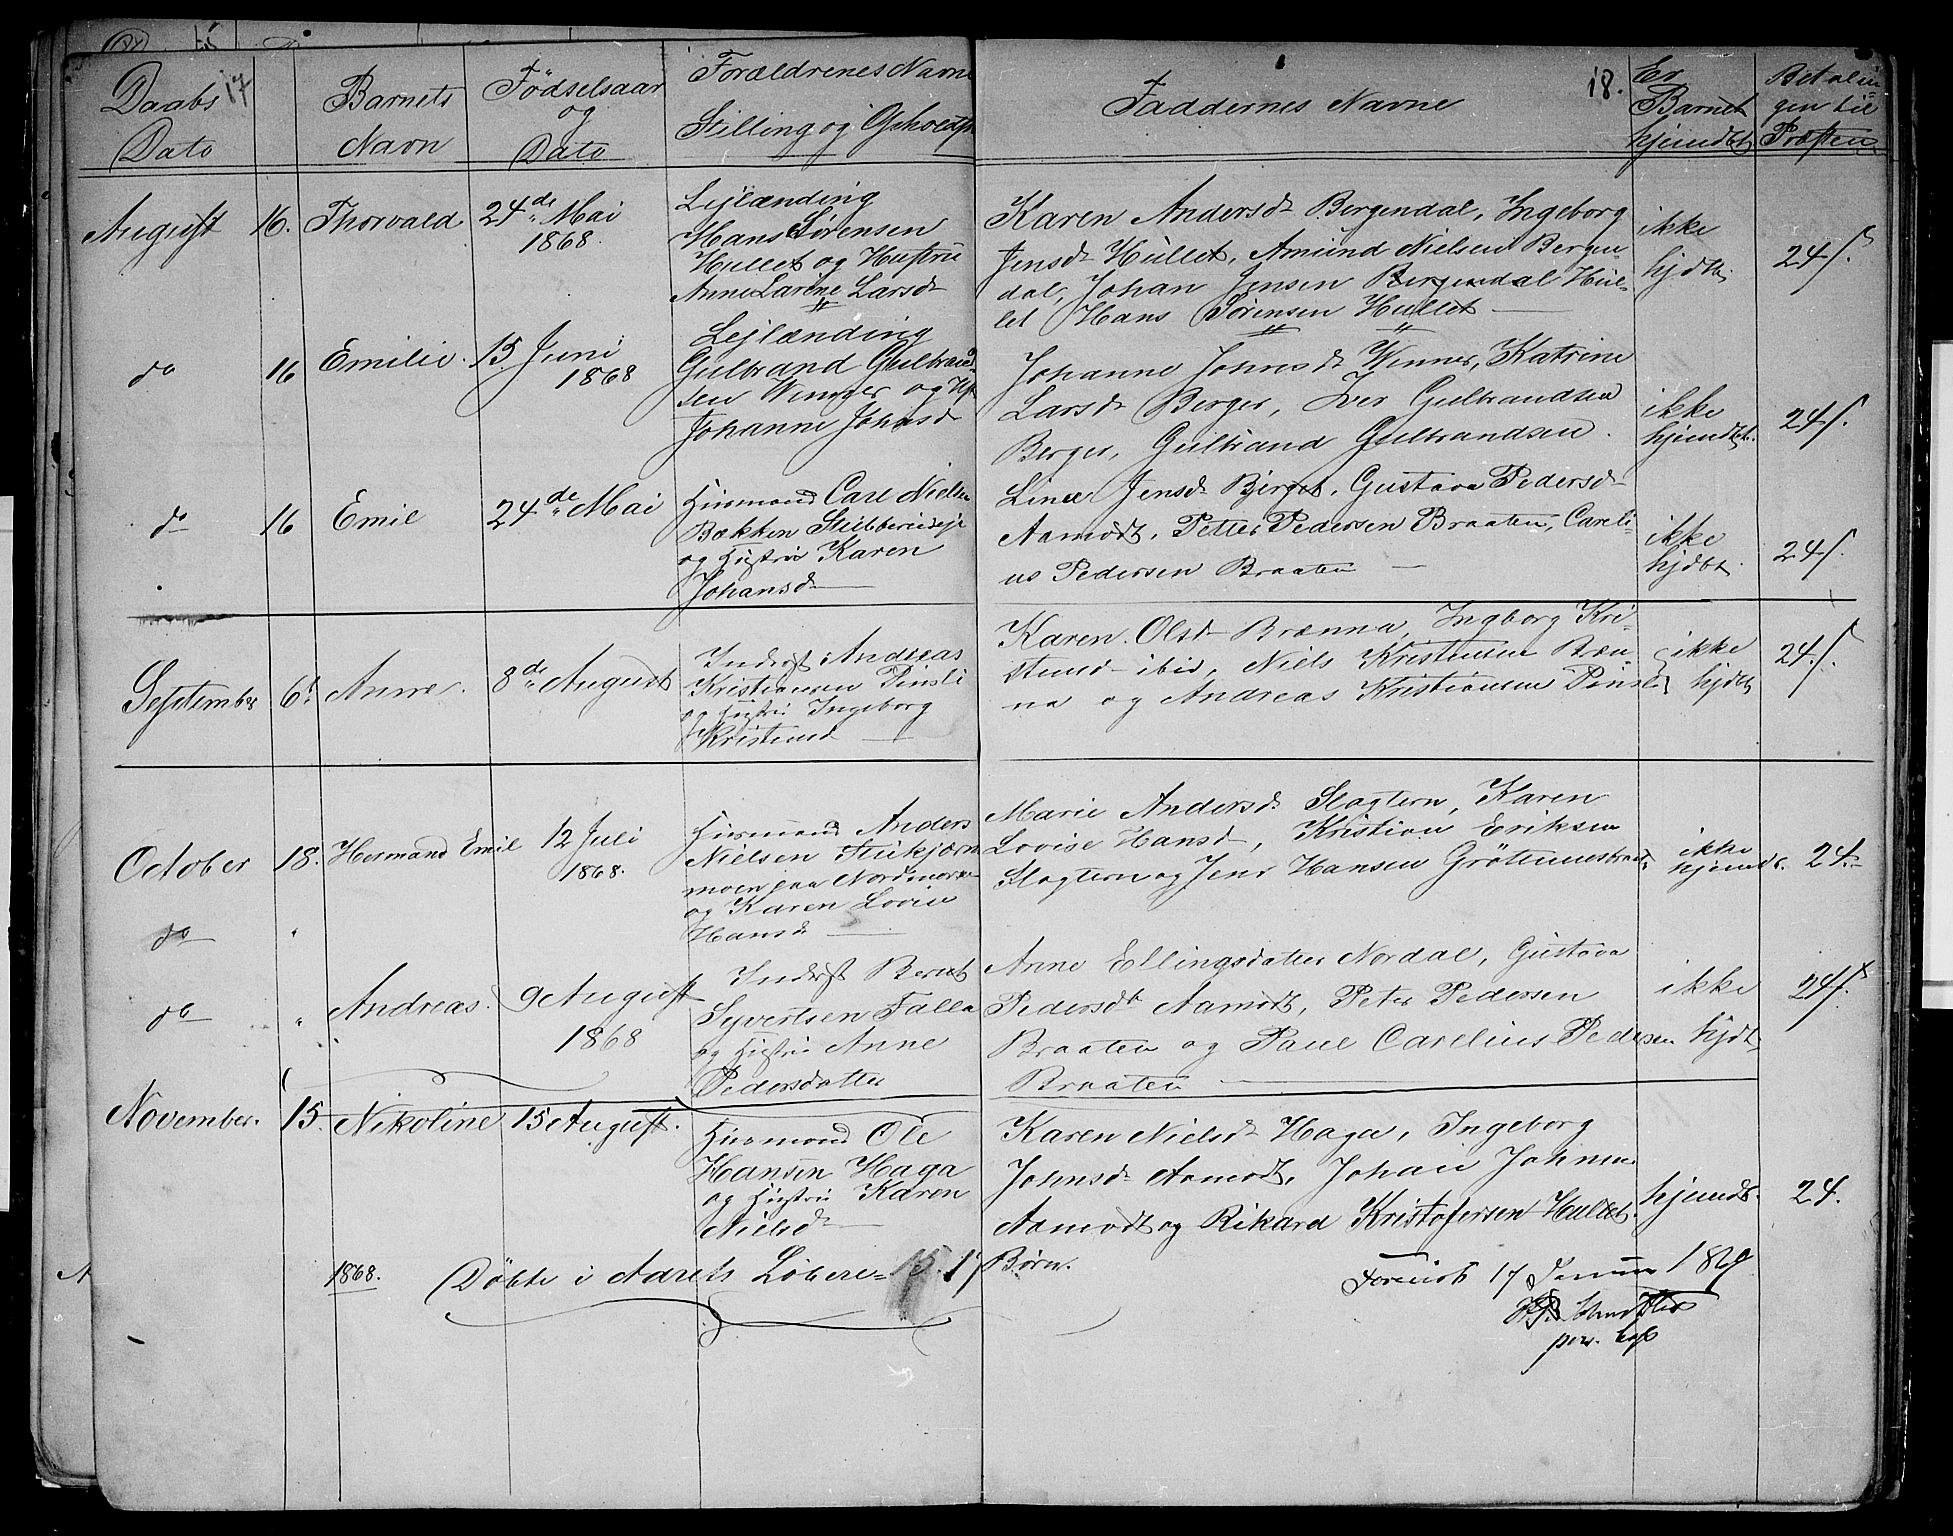 17
Daabs
Dato
Barnets
Navn
Fødselsaar
og
Dato
Forældrenes Navne
Stilling og
Faddernes Navne
18.
Er
Barnet
hjemdøbt
Betalin-
gen til
Præsten
August 16. Thorvald. 24de Mai
1868.
Lejlænding
Hans Sørensen
Hullet og Hustru
Anne Larine Larsd
Karen Andersd Bergendal, Ingeborg
Jensd Hullet, Amund Nielsen Bergen-
dal, Johan Jensen Bergendal Hul-
let Hans Sørensen Hullet
ikke
hjdbt.
24 s.
do 16 Emilie. 15 Juni
1868
Lejlænding
Gulbrand Gulbrand-
sen Winger og
Johanne Johnsd
Johanne Johnsd Winner, Katrine
Larsd Berger, Iver Gulbrandsen
Berger, Gulbrand Gulbrandsen.
ikke
hjemdbt.
24 s.
do 16 Emil 24de Mai
Husmand Carl Nielsen
Bækken Stubberudeje
og Hustru Karen
Johansd
Line Jensd Berget, Gustava Pedersd
Aamodt, Petter Pedersen Braaten, Careli-
us Pedersen Braaten
ikke
hjdbt.
24 s.
September 6. Anne. 8de August
Inderst Andreas
Kristiansen Pinsli
og Hustru Ingeborg
Karen Olsd Brænna, Ingborg Kri-
ibid, Niels Kristiansen Bræn-
na og Andreas Kristiansen Pinsli
ikke
hjdbt
24 s.
October 18. Hermand Emil 12 Juli
1868.
Husmand Anders
Nielsen
moen paa
og Karen Lovise
Hansd
Marie Andersd. Slagtern, Karen
Lovise Hansd, Kristian Eriksen
Slagtern og Jens Hansen
ikke
24.
do "
do " Andreas. 9 August
1868
Inderst Bernt
Syvertsen Falla
og Hustru Anne
Pedersdatter
Anne Ellingsdatter Nordal, Gustava
Pedersdt Aamodt, Peter Pedersen
Braaten og Paul Carelius Pedersen
Braaten
ikke
hjdt
24 s.
November. 15. Nikoline 15 August.
Husmand Ole
Hansen Haga
og Hustru Karen
Nielsd
Karen Nielsd Haga, Ingeborg
Johnsd Aamodt, Johan Johnsen
Aamodt og Rikard Kristofersen Hullet.
hjemdt.
24.
1868. Døbte i Aarets Løb 17 Børn.
17 Januar 1869